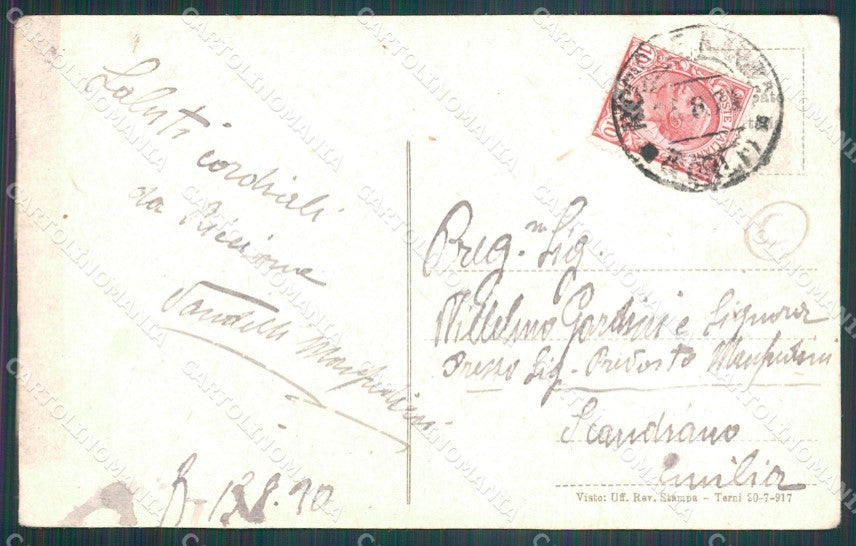 Saluti cordiali
da Riccione
Vandelli Manfredini
Preg.m Sig.
Willelmo Gardini e Signora
Presso Sig. Prevosto Manfredini
Scandiano
Emilia
Visto: Uff. Rev. Stampa - Terni 20-7-917
CARTOLINOMANIA